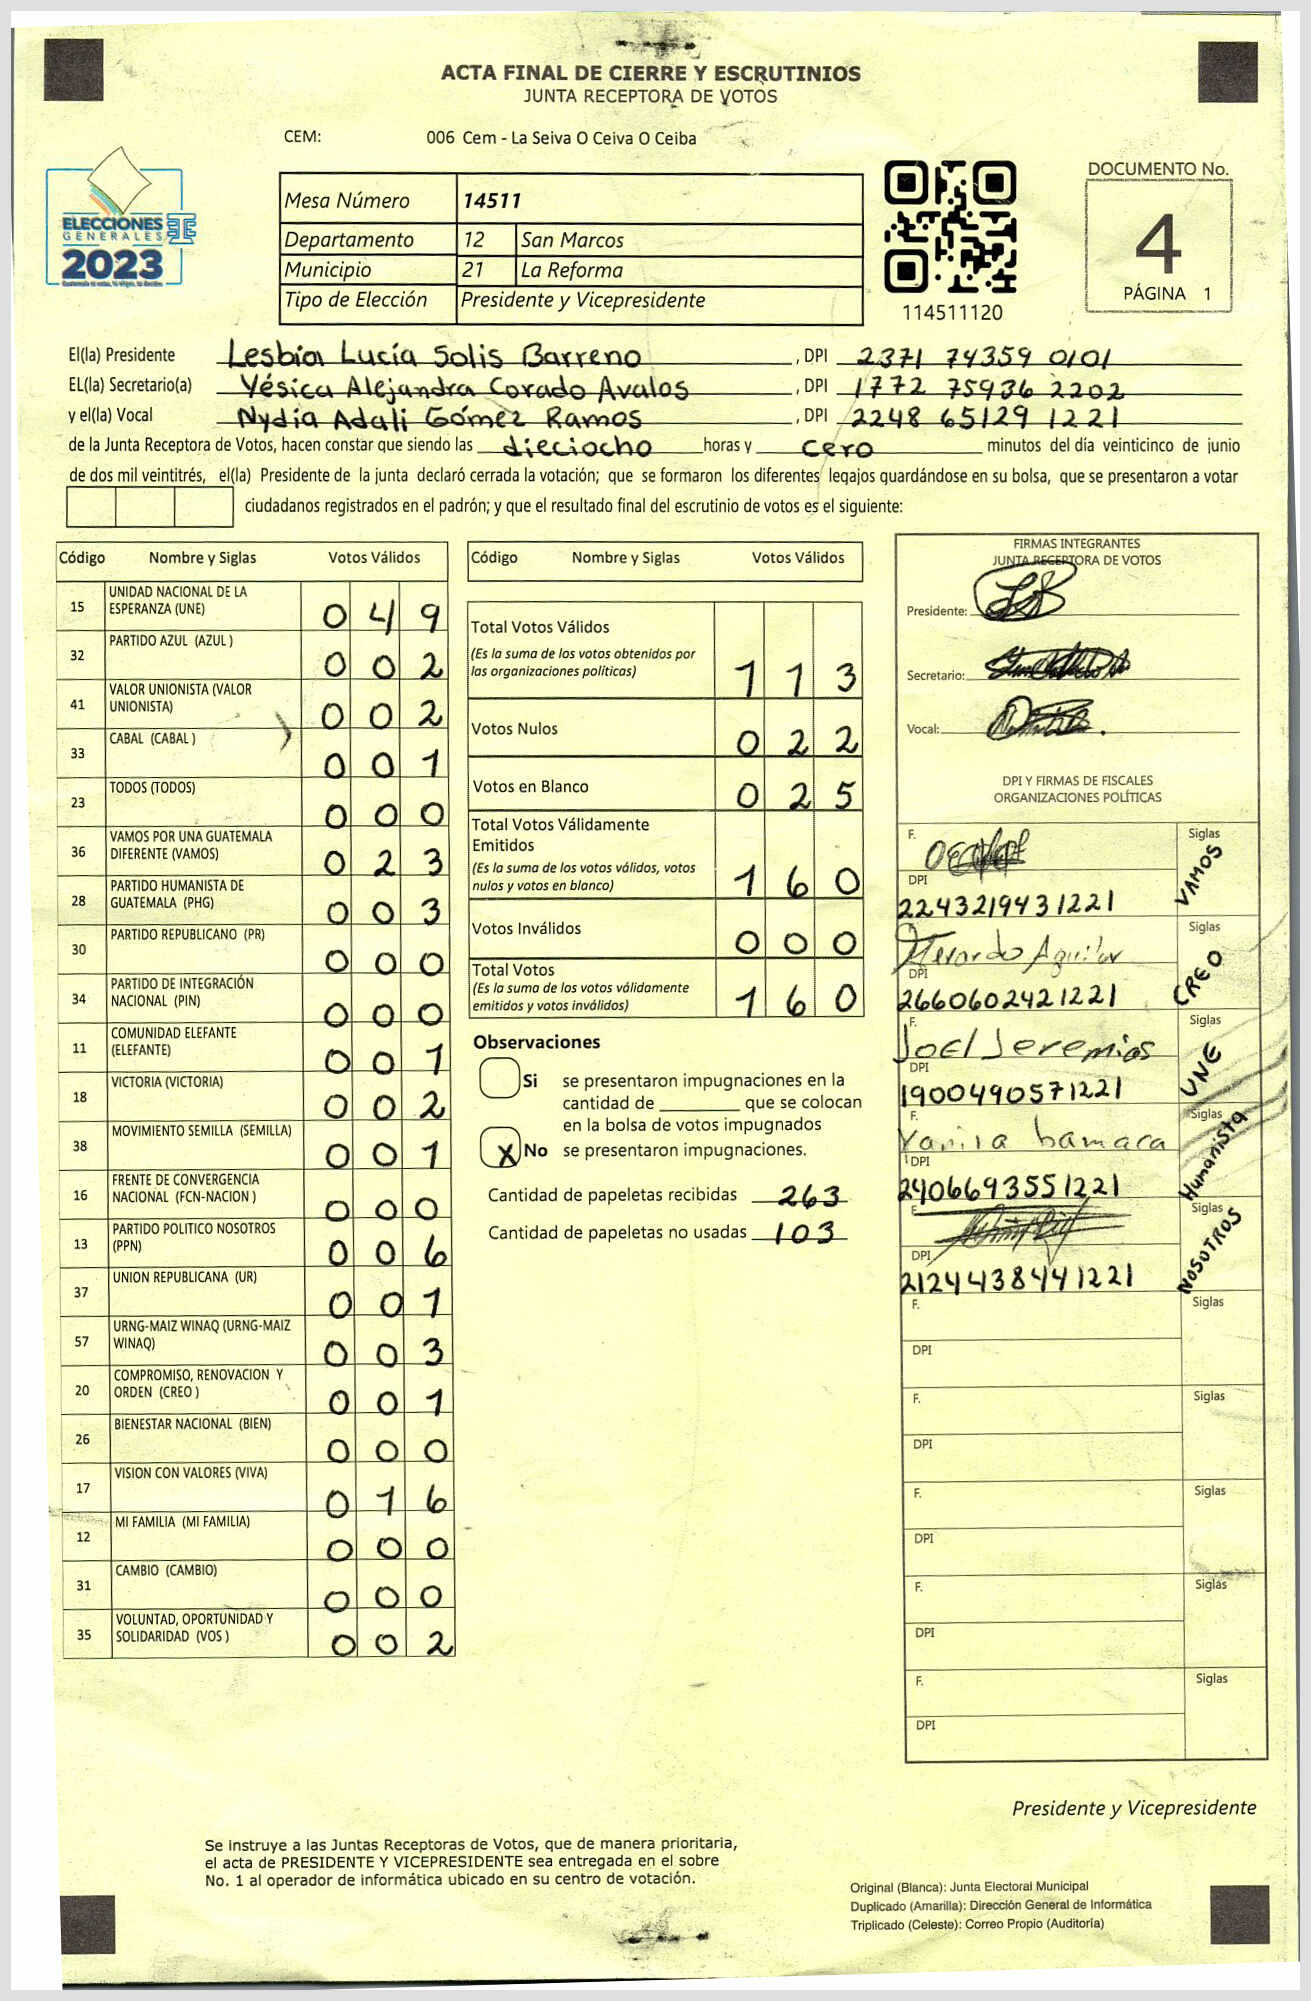 ACTA FINAL DE CIERRE Y ESCRUTINIOS
JUNTA RECEPTORA DE VOTOS
CEM: 006 Cem - La Seiva O Ceiva O Ceiba
ELECCIONES
GENERALES
2023
Mesa Número 14511
Departamento 12 San Marcos
Municipio 21 La Reforma
Tipo de Elección Presidente y Vicepresidente
114511120
DOCUMENTO No.
4
PÁGINA 1
El(la) Presidente Lesbia Lucía Solis Barreno, DPI 2371 74359 0101
EL(la) Secretario(a) Yésica Alejandra Corado Avalos, DPI 1772 75936 2202
y el(la) Vocal Nydia Adali Gómez Ramos, DPI 2248 65129 1221
de la Junta Receptora de Votos, hacen constar que siendo las dieciocho horas y cero minutos del día veinticinco de junio
de dos mil veintitrés, el(la) Presidente de la junta declaró cerrada la votación; que se formaron los diferentes legajos guardándose en su bolsa, que se presentaron a votar
ciudadanos registrados en el padrón; y que el resultado final del escrutinio de votos es el siguiente:
Código Nombre y Siglas Votos Válidos
15 UNIDAD NACIONAL DE LA ESPERANZA (UNE) 0 4 9
32 PARTIDO AZUL (AZUL ) 0 0 2
41 VALOR UNIONISTA (VALOR UNIONISTA) 0 0 2
33 CABAL (CABAL ) 0 0 1
23 TODOS (TODOS) 0 0 0
36 VAMOS POR UNA GUATEMALA DIFERENTE (VAMOS) 0 2 3
28 PARTIDO HUMANISTA DE GUATEMALA (PHG) 0 0 3
30 PARTIDO REPUBLICANO (PR) 0 0 0
34 PARTIDO DE INTEGRACIÓN NACIONAL (PIN) 0 0 0
11 COMUNIDAD ELEFANTE (ELEFANTE) 0 0 1
18 VICTORIA (VICTORIA) 0 0 2
38 MOVIMIENTO SEMILLA (SEMILLA) 0 0 1
16 FRENTE DE CONVERGENCIA NACIONAL (FCN-NACION ) 0 0 0
13 PARTIDO POLITICO NOSOTROS (PPN) 0 0 6
37 UNION REPUBLICANA (UR) 0 0 1
57 URNG-MAIZ WINAQ (URNG-MAIZ WINAQ) 0 0 3
20 COMPROMISO, RENOVACION Y ORDEN (CREO ) 0 0 1
26 BIENESTAR NACIONAL (BIEN) 0 0 0
17 VISION CON VALORES (VIVA) 0 1 6
12 MI FAMILIA (MI FAMILIA) 0 0 0
31 CAMBIO (CAMBIO) 0 0 0
35 VOLUNTAD, OPORTUNIDAD Y SOLIDARIDAD (VOS ) 0 0 2
Código Nombre y Siglas Votos Válidos
Total Votos Válidos
(Es la suma de los votos obtenidos por
las organizaciones políticas) 1 1 3
Votos Nulos 0 2 2
Votos en Blanco 0 2 5
Total Votos Válidamente
Emitidos
(Es la suma de los votos válidos, votos
nulos y votos en blanco) 1 6 0
Votos Inválidos 0 0 0
Total Votos
(Es la suma de los votos válidamente
emitidos y votos inválidos) 1 6 0
Observaciones
Si se presentaron impugnaciones en la
cantidad de ________ que se colocan
en la bolsa de votos impugnados
X No se presentaron impugnaciones.
Cantidad de papeletas recibidas 263
Cantidad de papeletas no usadas 103
FIRMAS INTEGRANTES
JUNTA RECEPTORA DE VOTOS
Presidente:
Secretario:
Vocal:
DPI Y FIRMAS DE FISCALES
ORGANIZACIONES POLÍTICAS
F. Siglas VAMOS
DPI
2243219431221
Aguilar Siglas CREO
DPI
2660602421221
F. Joel Jeremias Siglas UNE
DPI
1900490571221
F. Siglas Humanista
DPI
2406693551221
F. Siglas NOSOTROS
DPI
2124438441221
F. Siglas
DPI
F. Siglas
DPI
F. Siglas
DPI
F. Siglas
DPI
F. Siglas
DPI
Presidente y Vicepresidente
Se instruye a las Juntas Receptoras de Votos, que de manera prioritaria,
el acta de PRESIDENTE Y VICEPRESIDENTE sea entregada en el sobre
No. 1 al operador de informática ubicado en su centro de votación.
Original (Blanca): Junta Electoral Municipal
Duplicado (Amarilla): Dirección General de Informática
Triplicado (Celeste): Correo Propio (Auditoría)